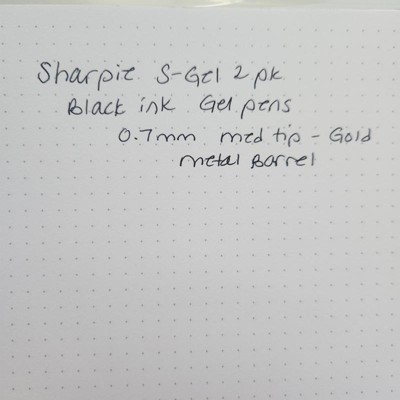 Sharpie S-Gel 2 pk
Black ink Gel pens
0.7mm med tip - Gold
metal Barrel